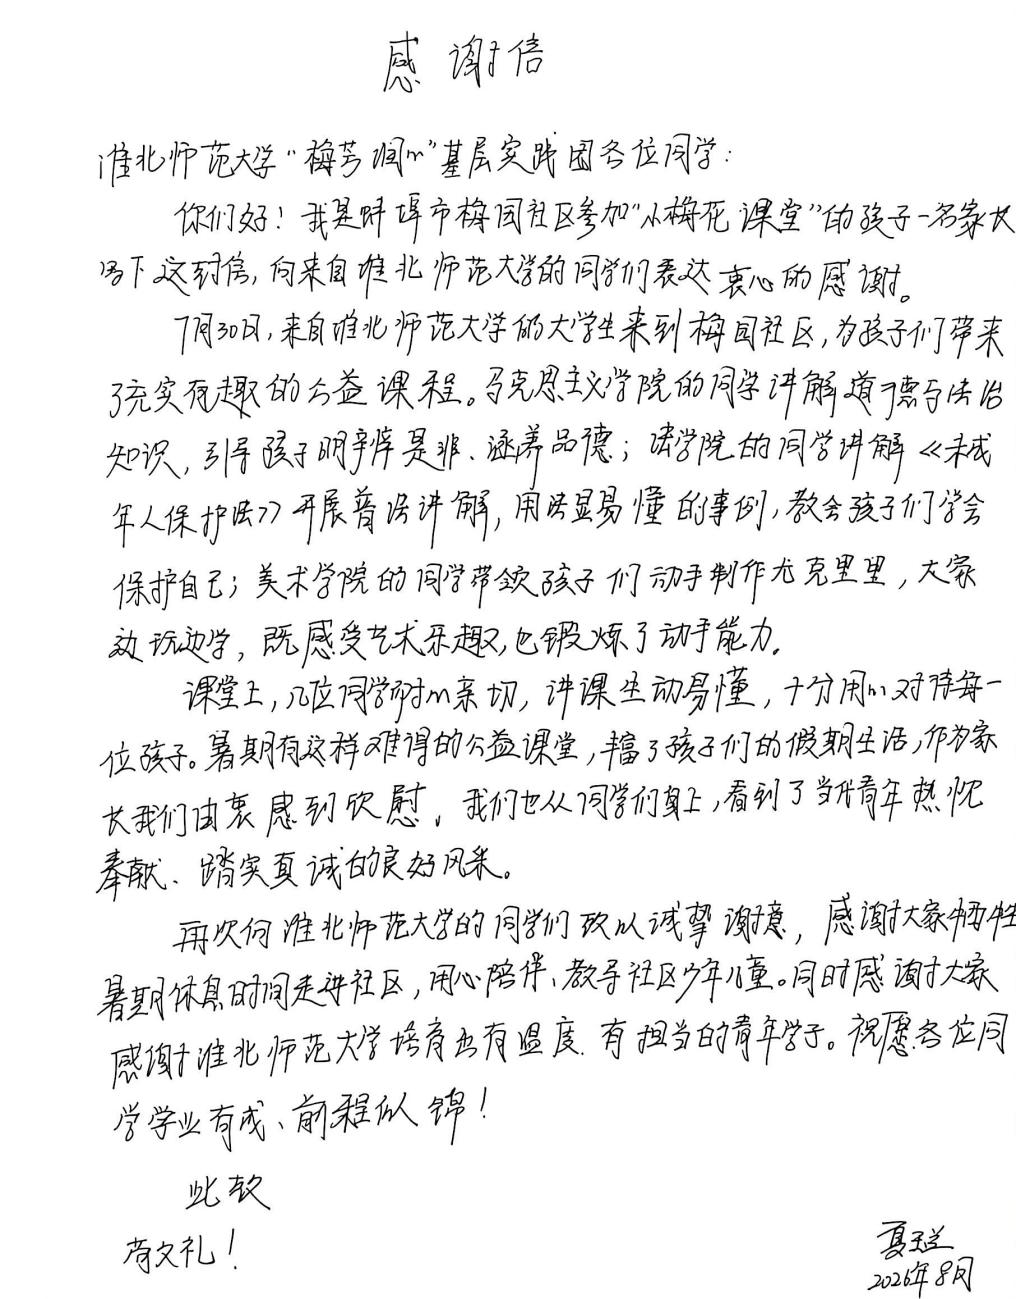 感谢信
淮北师范大学“梅芳润心”基层实践团各位同学：
你们好！我是蚌埠市梅园社区参加“小梅花课堂”的孩子一名家长
写下这封信，向来自淮北师范大学的同学们表达衷心的感谢。
7月30日，来自淮北师范大学的大学生来到梅园社区，为孩子们带来
了充实有趣的公益课程。马克思主义学院的同学讲解道德与法治
知识，引导孩子明辨是非、涵养品德；法学院的同学讲解《未成
年人保护法》开展普法讲解，用浅显易懂的事例，教会孩子们学会
保护自己；美术学院的同学带领孩子们动手制作尤克里里，大家
边玩边学，既感受艺术乐趣，也锻炼了动手能力。
课堂上，几位同学耐心亲切，讲课生动易懂，十分用心对待每一
位孩子。暑期有这样难得的公益课堂，丰富了孩子们的假期生活，作为家
长我们由衷感到欣慰。我们也从同学们身上，看到了当代青年热忱
奉献、踏实真诚的良好风采。
再次向淮北师范大学的同学们致以诚挚谢意，感谢大家牺牲
暑期休息时间走进社区，用心陪伴、教导社区少年儿童。同时感谢大家
感谢淮北师范大学培育出有温度、有担当的青年学子。祝愿各位同
学学业有成、前程似锦！
此致
敬礼！
夏玉兰
2026年8月